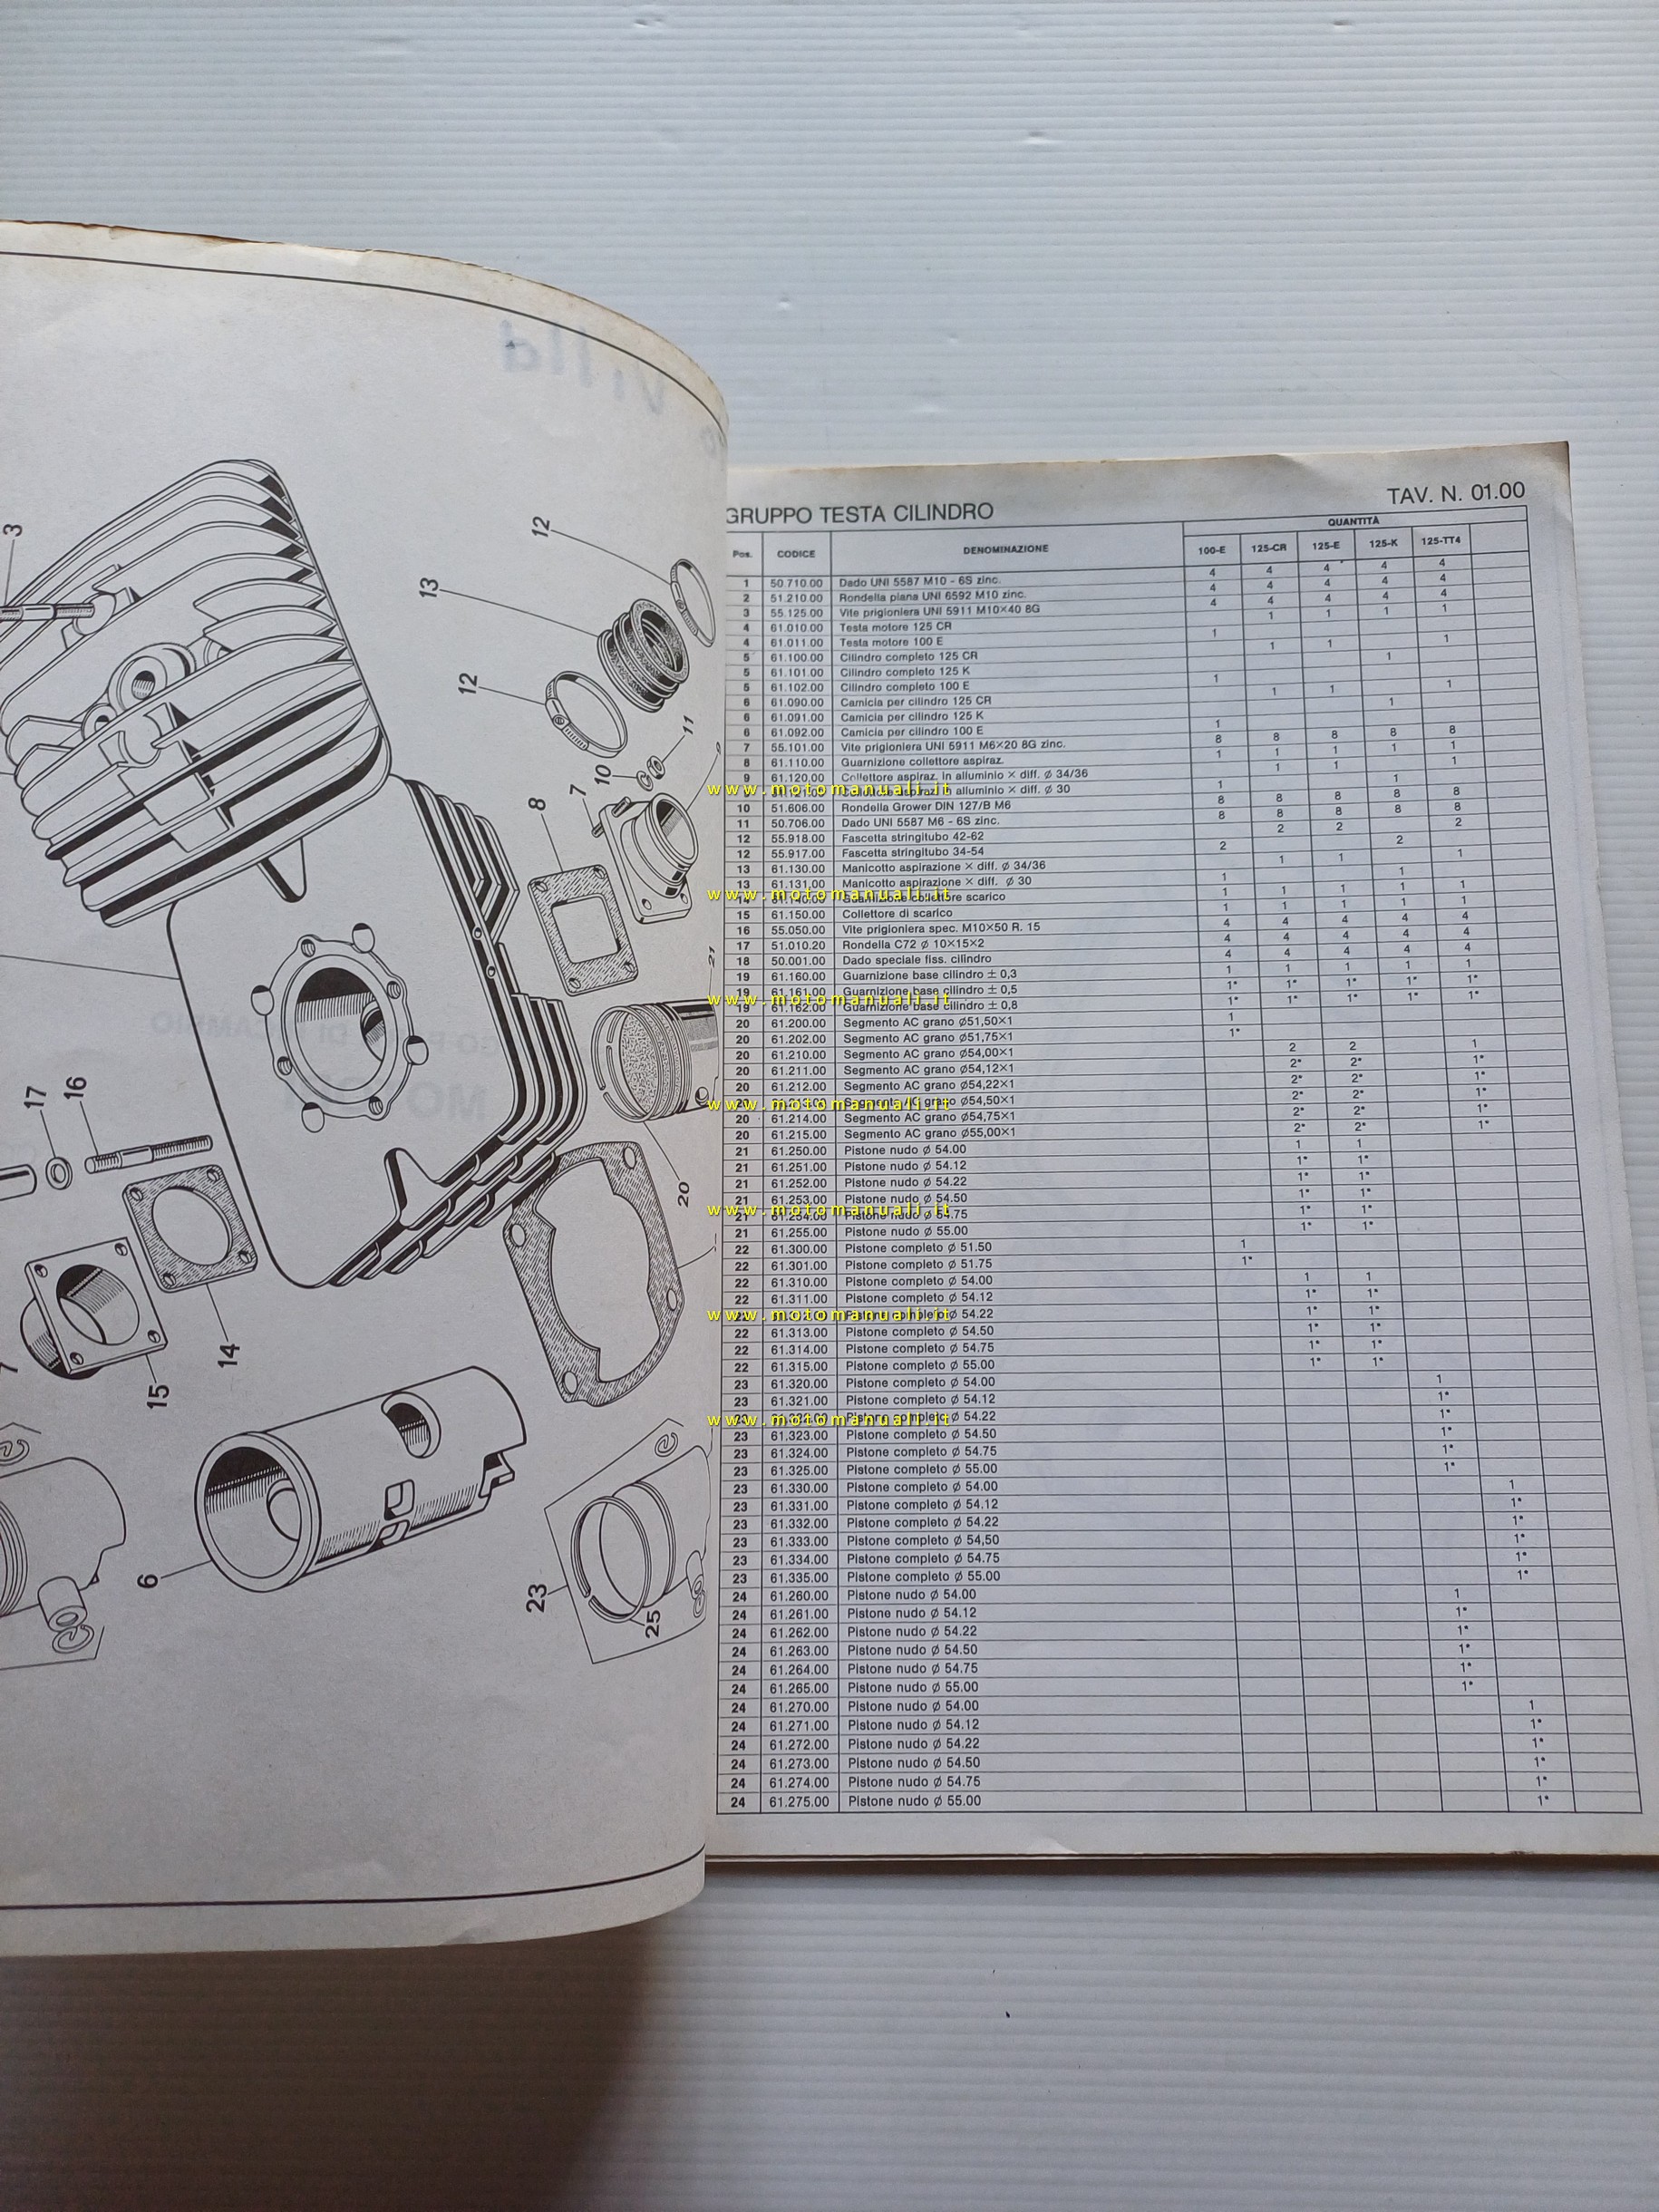 Villa
3
12
13
12
11
10
7
8
9
21
17
16
20
14
15
7
6
23
25
GRUPPO TESTA CILINDRO
TAV. N. 01.00
Pos. CODICE DENOMINAZIONE QUANTITÀ
100-E 125-CR 125-E 125-K 125-TT4
1 50.710.00 Dado UNI 5587 M10 - 6S zinc. 4 4 4 4 4
2 51.210.00 Rondella piana UNI 6592 M10 zinc. 4 4 4 4 4
3 55.125.00 Vite prigioniera UNI 5911 M10×40 8G 4 4 4 4 4
4 61.010.00 Testa motore 125 CR 1 1 1 1
4 61.011.00 Testa motore 100 E 1
5 61.100.00 Cilindro completo 125 CR 1 1 1
5 61.101.00 Cilindro completo 125 K 1
5 61.102.00 Cilindro completo 100 E 1
6 61.090.00 Camicia per cilindro 125 CR 1 1 1
6 61.091.00 Camicia per cilindro 125 K 1
6 61.092.00 Camicia per cilindro 100 E 1
7 55.101.00 Vite prigioniera UNI 5911 M6×20 8G zinc. 8 8 8 8 8
8 61.110.00 Guarnizione collettore aspiraz. 1 1 1 1 1
9 61.120.00 Collettore aspiraz. in alluminio × diff. ⌀ 34/36 1 1 1
in alluminio × diff. ⌀ 30 1 1
10 51.606.00 Rondella Grower DIN 127/B M6 8 8 8 8 8
11 50.706.00 Dado UNI 5587 M6 - 6S zinc. 8 8 8 8 8
12 55.918.00 Fascetta stringitubo 42-62 2 2 2
12 55.917.00 Fascetta stringitubo 34-54 2 2
13 61.130.00 Manicotto aspirazione × diff. ⌀ 34/36 1 1 1
13 61.131.00 Manicotto aspirazione × diff. ⌀ 30 1 1
14 61.140.00 Guarnizione collettore scarico 1 1 1 1 1
15 61.150.00 Collettore di scarico 1 1 1 1 1
16 55.050.00 Vite prigioniera spec. M10×50 R. 15 4 4 4 4 4
17 51.010.20 Rondella C72 ⌀ 10×15×2 4 4 4 4 4
18 50.001.00 Dado speciale fiss. cilindro 4 4 4 4 4
19 61.160.00 Guarnizione base cilindro ± 0,3 1 1 1 1 1
19 61.161.00 Guarnizione base cilindro ± 0,5 1* 1* 1* 1* 1*
19 61.162.00 Guarnizione base cilindro ± 0,8 1* 1* 1* 1* 1*
20 61.200.00 Segmento AC grano ⌀51,50×1 1
20 61.202.00 Segmento AC grano ⌀51,75×1 1*
20 61.210.00 Segmento AC grano ⌀54,00×1 2 2 1
20 61.211.00 Segmento AC grano ⌀54,12×1 2* 2* 1*
20 61.212.00 Segmento AC grano ⌀54,22×1 2* 2* 1*
20 Segmento AC grano ⌀54,50×1 2* 2* 1*
20 61.214.00 Segmento AC grano ⌀54,75×1 2* 2* 1*
20 61.215.00 Segmento AC grano ⌀55,00×1 2* 2* 1*
21 61.250.00 Pistone nudo ⌀ 54.00 1 1
21 61.251.00 Pistone nudo ⌀ 54.12 1* 1*
21 61.252.00 Pistone nudo ⌀ 54.22 1* 1*
21 61.253.00 Pistone nudo ⌀ 54.50 1* 1*
21 61.254.00 Pistone nudo ⌀ 54.75 1* 1*
21 61.255.00 Pistone nudo ⌀ 55.00 1* 1*
22 61.300.00 Pistone completo ⌀ 51.50 1
22 61.301.00 Pistone completo ⌀ 51.75 1*
22 61.310.00 Pistone completo ⌀ 54.00 1 1
22 61.311.00 Pistone completo ⌀ 54.12 1* 1*
22 Pistone completo ⌀ 54.22 1* 1*
22 61.313.00 Pistone completo ⌀ 54.50 1* 1*
22 61.314.00 Pistone completo ⌀ 54.75 1* 1*
22 61.315.00 Pistone completo ⌀ 55.00 1* 1*
23 61.320.00 Pistone completo ⌀ 54.00 1
23 61.321.00 Pistone completo ⌀ 54.12 1*
Pistone completo ⌀ 54.22 1*
23 61.323.00 Pistone completo ⌀ 54.50 1*
23 61.324.00 Pistone completo ⌀ 54.75 1*
23 61.325.00 Pistone completo ⌀ 55.00 1*
23 61.330.00 Pistone completo ⌀ 54.00 1
23 61.331.00 Pistone completo ⌀ 54.12 1*
23 61.332.00 Pistone completo ⌀ 54.22 1*
23 61.333.00 Pistone completo ⌀ 54,50 1*
23 61.334.00 Pistone completo ⌀ 54.75 1*
23 61.335.00 Pistone completo ⌀ 55.00 1*
24 61.260.00 Pistone nudo ⌀ 54.00 1
24 61.261.00 Pistone nudo ⌀ 54.12 1*
24 61.262.00 Pistone nudo ⌀ 54.22 1*
24 61.263.00 Pistone nudo ⌀ 54.50 1*
24 61.264.00 Pistone nudo ⌀ 54.75 1*
24 61.265.00 Pistone nudo ⌀ 55.00 1*
24 61.270.00 Pistone nudo ⌀ 54.00 1
24 61.271.00 Pistone nudo ⌀ 54.12 1*
24 61.272.00 Pistone nudo ⌀ 54.22 1*
24 61.273.00 Pistone nudo ⌀ 54.50 1*
24 61.274.00 Pistone nudo ⌀ 54.75 1*
24 61.275.00 Pistone nudo ⌀ 55.00 1*
www.motomanuali.it
www.motomanuali.it
www.motomanuali.it
www.motomanuali.it
www.motomanuali.it
www.motomanuali.it
www.motomanuali.it